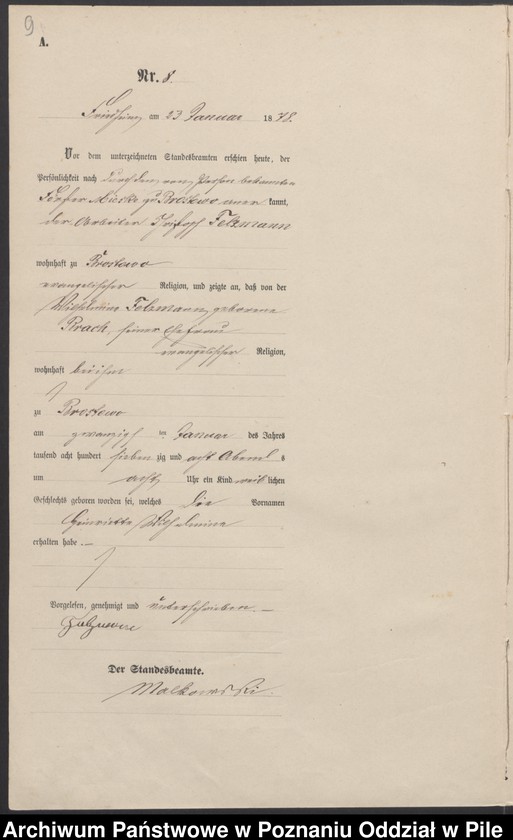 9
A.
Nr. 8.
am 23 Januar 1878.
Vor dem unterzeichneten Standesbeamten erschien heute, der
Persönlichkeit nach durch den von Person bekannten
zu Brostowo aner kannt,
der Arbeiter Felzmann
wohnhaft zu Brostowo
evangelischer Religion, und zeigte an, daß von der
Wilhelmine Felzmann, geborene
Pirach, seiner Ehefrau
evangelischer Religion,
wohnhaft bei ihm
zu Brostowo
am zwanzigsten Januar des Jahres
tausend acht hundert sieben zig und acht Abend s
um acht Uhr ein Kind weib lichen
Geschlechts geboren worden sei, welches die Vornamen
Henriette Wilhelmine
erhalten habe .—
Vorgelesen, genehmigt und unterschrieben. —
Der Standesbeamte.
Malkowski
Archiwum Państwowe w Poznaniu Oddział w Pile